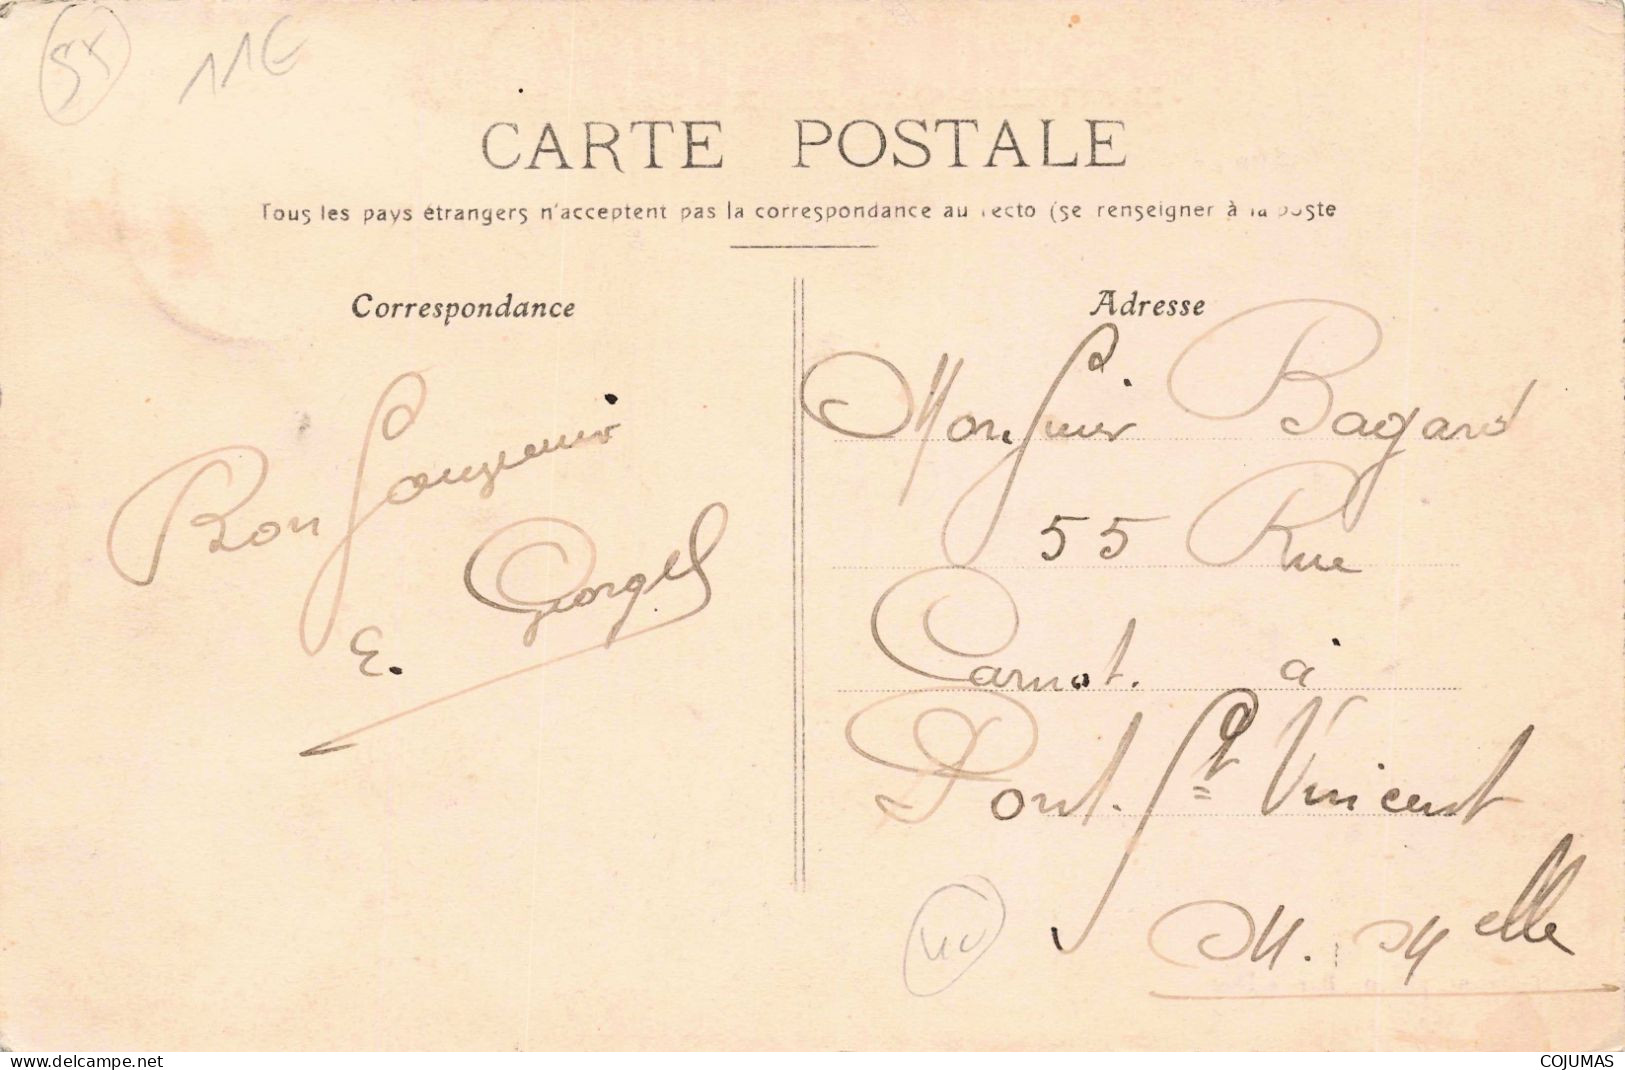 55
11€
CARTE POSTALE
Tous les pays étrangers n'acceptent pas la correspondance au recto (se renseigner à la poste
Correspondance
Adresse
Bon Souvenir
E. Georgel
Monsieur Bagard
55 Rue
Carnot. à
Pont-St Vincent
M. Melle
www.delcampe.net
COJUMAS